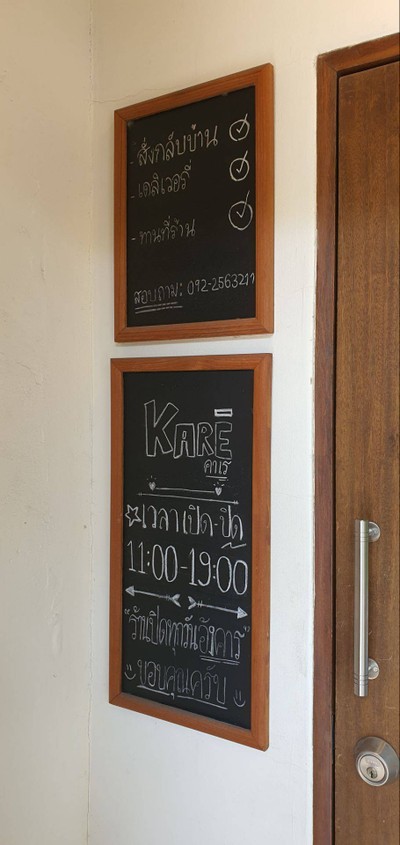 - สั่งกลับบ้าน
- เดลิเวอรี่
- ทานที่ร้าน
สอบถาม: 092-2563211
KARĒ
คาเร
เวลาเปิด-ปิด
11:00-19:00
"ร้านปิดทุกวันอังคาร"
ขอบคุณครับ